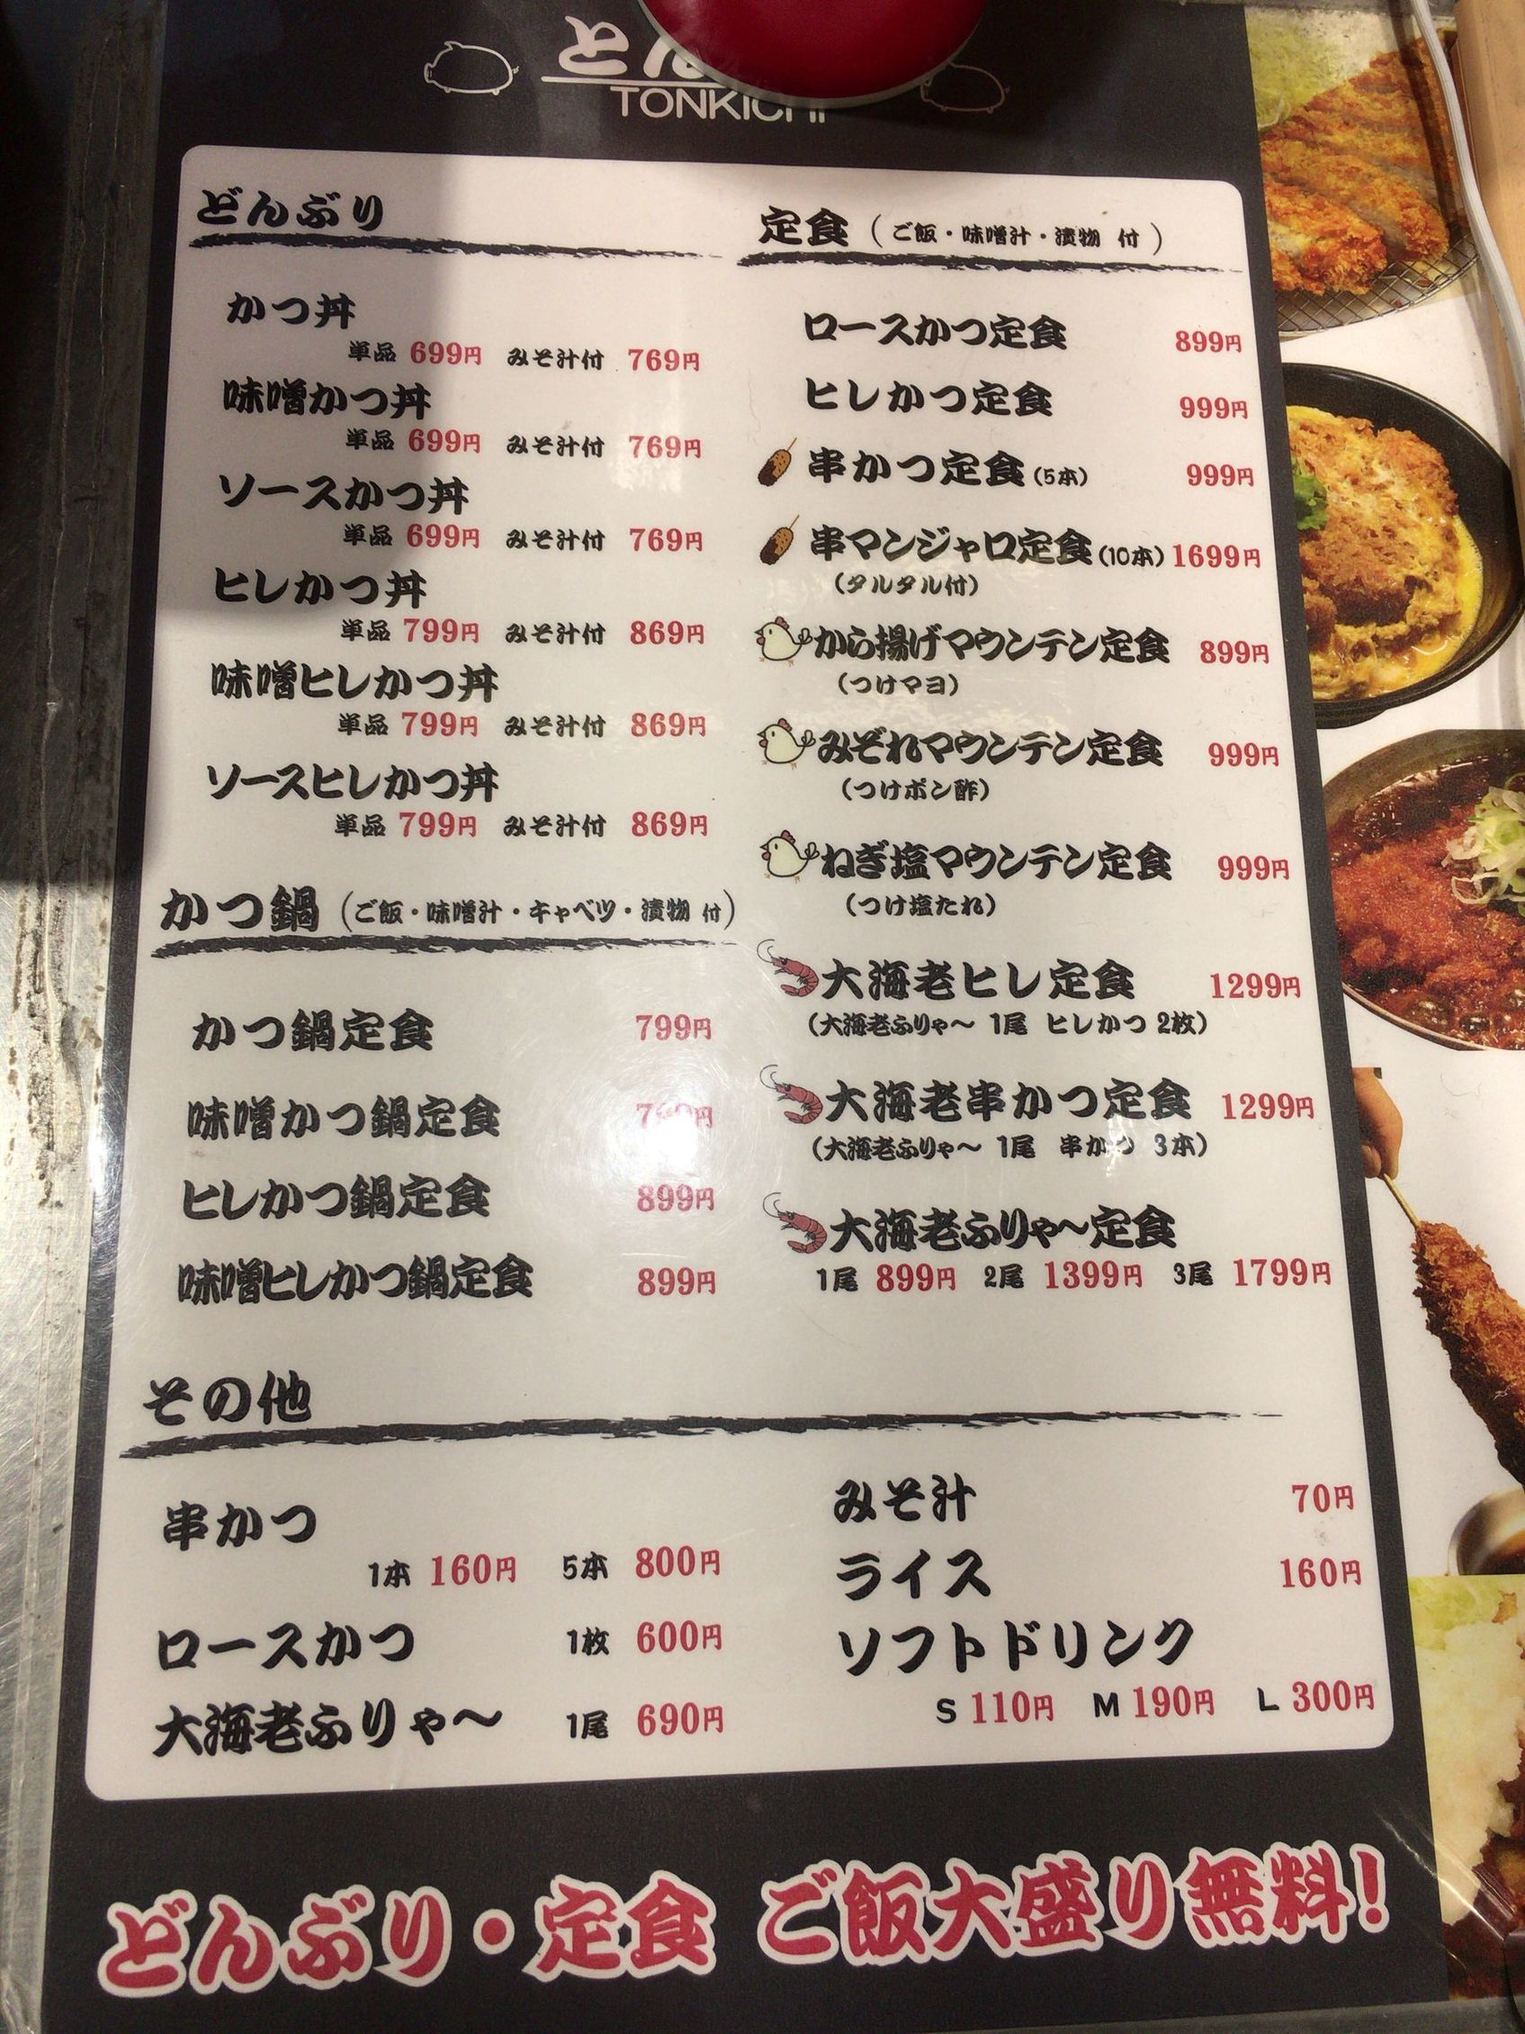 TONKICHI
どんぶり
かつ丼
単品 699円 みそ汁付 769円
味噌かつ丼
単品 699円 みそ汁付 769円
ソースかつ丼
単品 699円 みそ汁付 769円
ヒレかつ丼
単品 799円 みそ汁付 869円
味噌ヒレかつ丼
単品 799円 みそ汁付 869円
ソースヒレかつ丼
単品 799円 みそ汁付 869円
かつ鍋(ご飯・味噌汁・キャベツ・漬物 付)
かつ鍋定食 799円
味噌かつ鍋定食
ヒレかつ鍋定食 899円
味噌ヒレかつ鍋定食 899円
定食(ご飯・味噌汁・漬物 付)
ロースかつ定食 899円
ヒレかつ定食 999円
串かつ定食(5本) 999円
串マンジャロ定食(10本) 1699円
(タルタル付)
から揚げマウンテン定食 899円
(つけマヨ)
みぞれマウンテン定食 999円
(つけポン酢)
ねぎ塩マウンテン定食 999円
(つけ塩たれ)
大海老ヒレ定食 1299円
(大海老ふりゃ〜 1尾 ヒレかつ 2枚)
大海老串かつ定食 1299円
(大海老ふりゃ〜 1尾 串かつ 3本)
大海老ふりゃ〜定食
1尾 899円 2尾 1399円 3尾 1799円
その他
串かつ
1本 160円 5本 800円
ロースかつ 1枚 600円
大海老ふりゃ〜 1尾 690円
みそ汁 70円
ライス 160円
ソフトドリンク
S 110円 M 190円 L 300円
どんぶり・定食 ご飯大盛り無料!